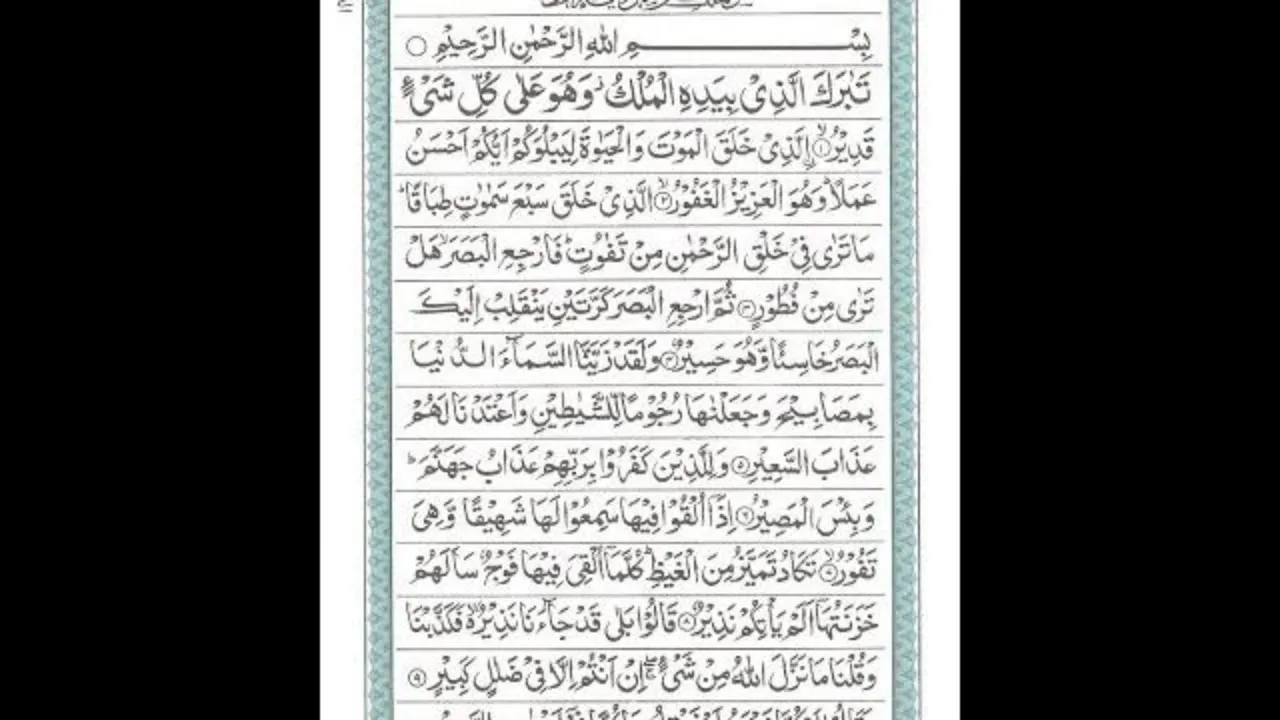 بِسْمِ اللهِ الرَّحْمٰنِ الرَّحِيْمِ ○
تَبٰرَكَ الَّذِىْ بِيَدِهِ الْمُلْكُ ۫ وَهُوَ عَلٰى كُلِّ شَىْءٍ
قَدِيْرُۙ ﴿۱﴾ اۨلَّذِىْ خَلَقَ الْمَوْتَ وَالْحَيٰوةَ لِيَبْلُوَكُمْ اَيُّكُمْ اَحْسَنُ
عَمَلًا ؕ وَهُوَ الْعَزِيْزُ الْغَفُوْرُۙ ﴿۲﴾ الَّذِىْ خَلَقَ سَبْعَ سَمٰوٰتٍ طِبَاقًا ؕ
مَا تَرٰى فِىْ خَلْقِ الرَّحْمٰنِ مِنْ تَفٰوُتٍ ؕ فَارْجِعِ الْبَصَرَۙ هَلْ
تَرٰى مِنْ فُطُوْرٍ ﴿۳﴾ ثُمَّ ارْجِعِ الْبَصَرَ كَرَّتَيْنِ يَنْقَلِبْ اِلَيْكَ
الْبَصَرُ خَاسِئًا وَّهُوَ حَسِيْرٌ ﴿۴﴾ وَلَقَدْ زَيَّنَّا السَّمَآءَ الدُّنْيَا
بِمَصَابِيْحَ وَجَعَلْنٰهَا رُجُوْمًا لِّلشَّيٰطِيْنِ وَاَعْتَدْنَا لَهُمْ
عَذَابَ السَّعِيْرِ ﴿۵﴾ وَلِلَّذِيْنَ كَفَرُوْا بِرَبِّهِمْ عَذَابُ جَهَنَّمَ ؕ
وَبِئْسَ الْمَصِيْرُ ﴿۶﴾ اِذَاۤ اُلْقُوْا فِيْهَا سَمِعُوْا لَهَا شَهِيْقًا وَّهِىَ
تَفُوْرُۙ ﴿۷﴾ تَكَادُ تَمَيَّزُ مِنَ الْغَيْظِ ؕ كُلَّمَاۤ اُلْقِىَ فِيْهَا فَوْجٌ سَاَلَهُمْ
خَزَنَتُهَاۤ اَلَمْ يَاْتِكُمْ نَذِيْرٌ ﴿۸﴾ قَالُوْا بَلٰى قَدْ جَآءَنَا نَذِيْرٌ ۙ فَكَذَّبْنَا
وَقُلْنَا مَا نَزَّلَ اللهُ مِنْ شَىْءٍ ۖۚ اِنْ اَنْتُمْ اِلَّا فِىْ ضَلٰلٍ كَبِيْرٍ ﴿۹﴾